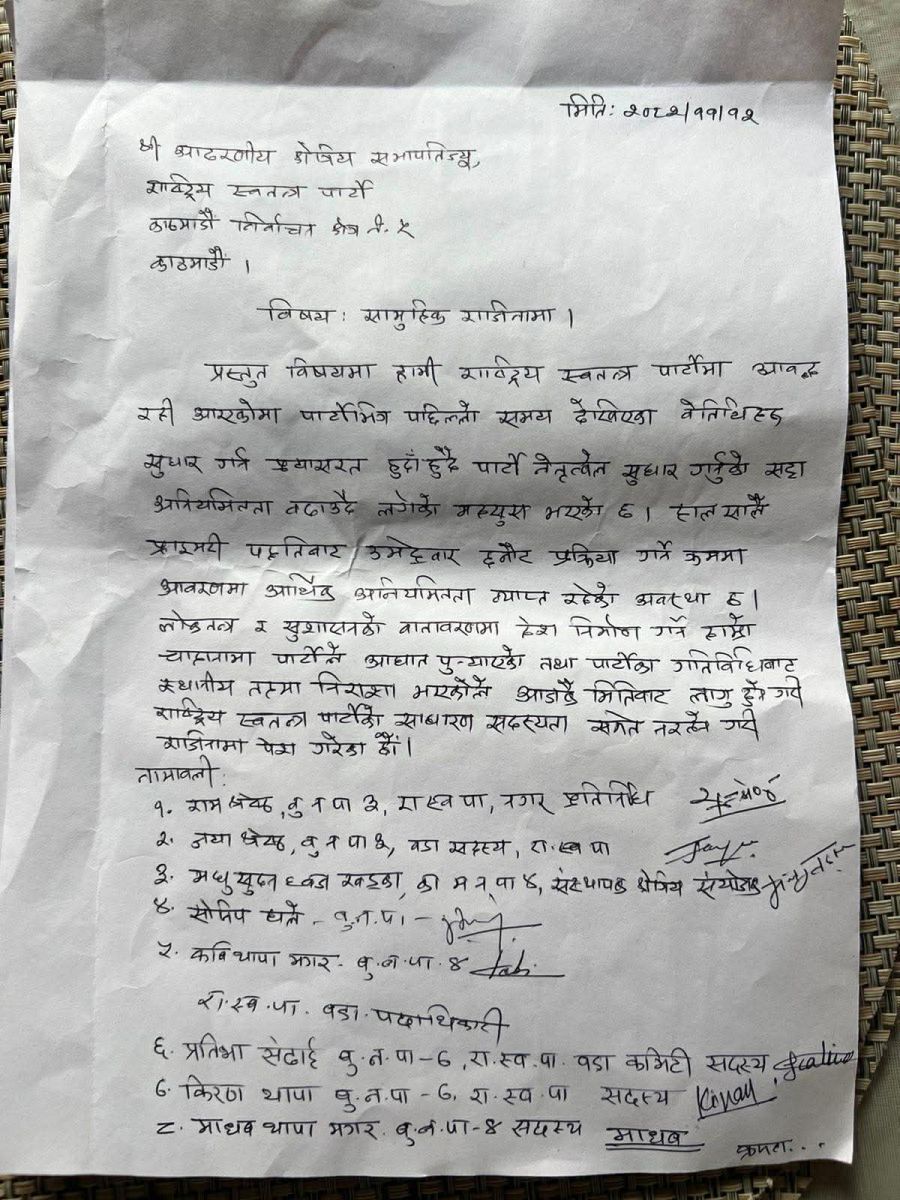 मिति: २०८२/११/१२
श्री आदरणीय क्षेत्रिय सभापतिज्यू,
राष्ट्रिय स्वतन्त्र पार्टी
काठमाडौं निर्वाचन क्षेत्र नं. ५
काठमाडौं ।
विषय: सामुहिक राजिनामा ।
प्रस्तुत विषयमा हामी राष्ट्रिय स्वतन्त्र पार्टीमा आवद्ध
रही आएकोमा पार्टीभित्र पछिल्लो समय देखिएका वेतिथिहरु
सुधार गर्न प्रयासरत हुदाँहुदै पार्टी नेतृत्वले सुधार गर्नुको सट्टा
अनियमितता वढाउदै लगेको महसुस भएको छ । हाल सालै
प्राइमरी पद्दतिबाट उमेद्दवार छनौट प्रक्रिया गर्ने क्रममा
आवरणमा आर्थिक अनियमितता व्याप्त रहेको अवस्था छ ।
लोकतन्त्र र सुशासनको वातावरणमा देश निर्माण गर्ने हाम्रो
चाहनामा पार्टीले आघात पुर्‍याएको तथा पार्टीका गतिविधिबाट
स्थानीय तहमा निराशा भएकोले आजकै मितिबाट लागु हुने गरी
राष्ट्रिय स्वतन्त्र पार्टीको साधारण सदस्यता समेत नरहने गरी
राजिनामा पेश गरेका छौं ।
नामावली:
१. राम श्रेष्ठ, वु न पा ३, रा स्व पा, नगर प्रतिनिधि
२. जया श्रेष्ठ, वु न पा ३, वडा सदस्य, रा. स्व पा
३. मधु सुदन खड्का, का म न पा ४, संस्थापक क्षेत्रिय संयोजक
४. सोविप घले - वु. न. पा. -
५. कवि थापा मगर - वु. न. पा. ४
रा. स्व. पा. वडा पदाधिकारी
६. प्रतिभा सेढाई वु. न. पा - ७, रा. स्व. पा. वडा कमिटी सदस्य
७. किरण थापा वु. न. पा - ७, रा. स्व. पा सदस्य Kiran
८. माधव थापा मगर वु. न. पा - ४ सदस्य माधव
क्रमश...